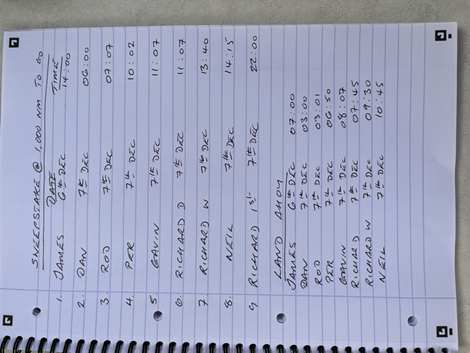 SWEEPSTAKE @ 1,000 NM TO GO
DATE TIME
1. JAMES 6th DEC 14:00
2. DAN 7th DEC 06:00
3 ROD 7th DEC 07:07
4. PER 7th DEC 10:02
5 GAVIN 7th DEC 11:07
6. RICHARD D 7th DEC 11:07
7 RICHARD W 7th DEC 13:40
8. NEIL 7th DEC 14:15
9 RICHARD 1st 7th DEC 22:00
LAND AHOY
JAMES 6th DEC 07:00
DAN 7th DEC 03:00
ROD 7th DEC 03:01
PER 7th DEC 06:50
GAVIN 7th DEC 08:07
RICHARD D 7th DEC 07:45
RICHARD W 7th DEC 09:30
NEIL 7th DEC 10:45